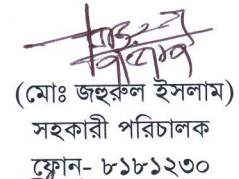 (মোঃ জহুরুল ইসলাম)
সহকারী পরিচালক
ফোন- ৮১৮১২৩০